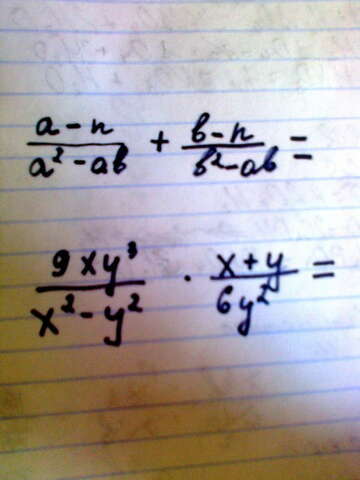 (a - n)/(a² - ab) + (b - n)/(b² - ab) =
(9xy³)/(x² - y²) · (x + y)/(6y²) =